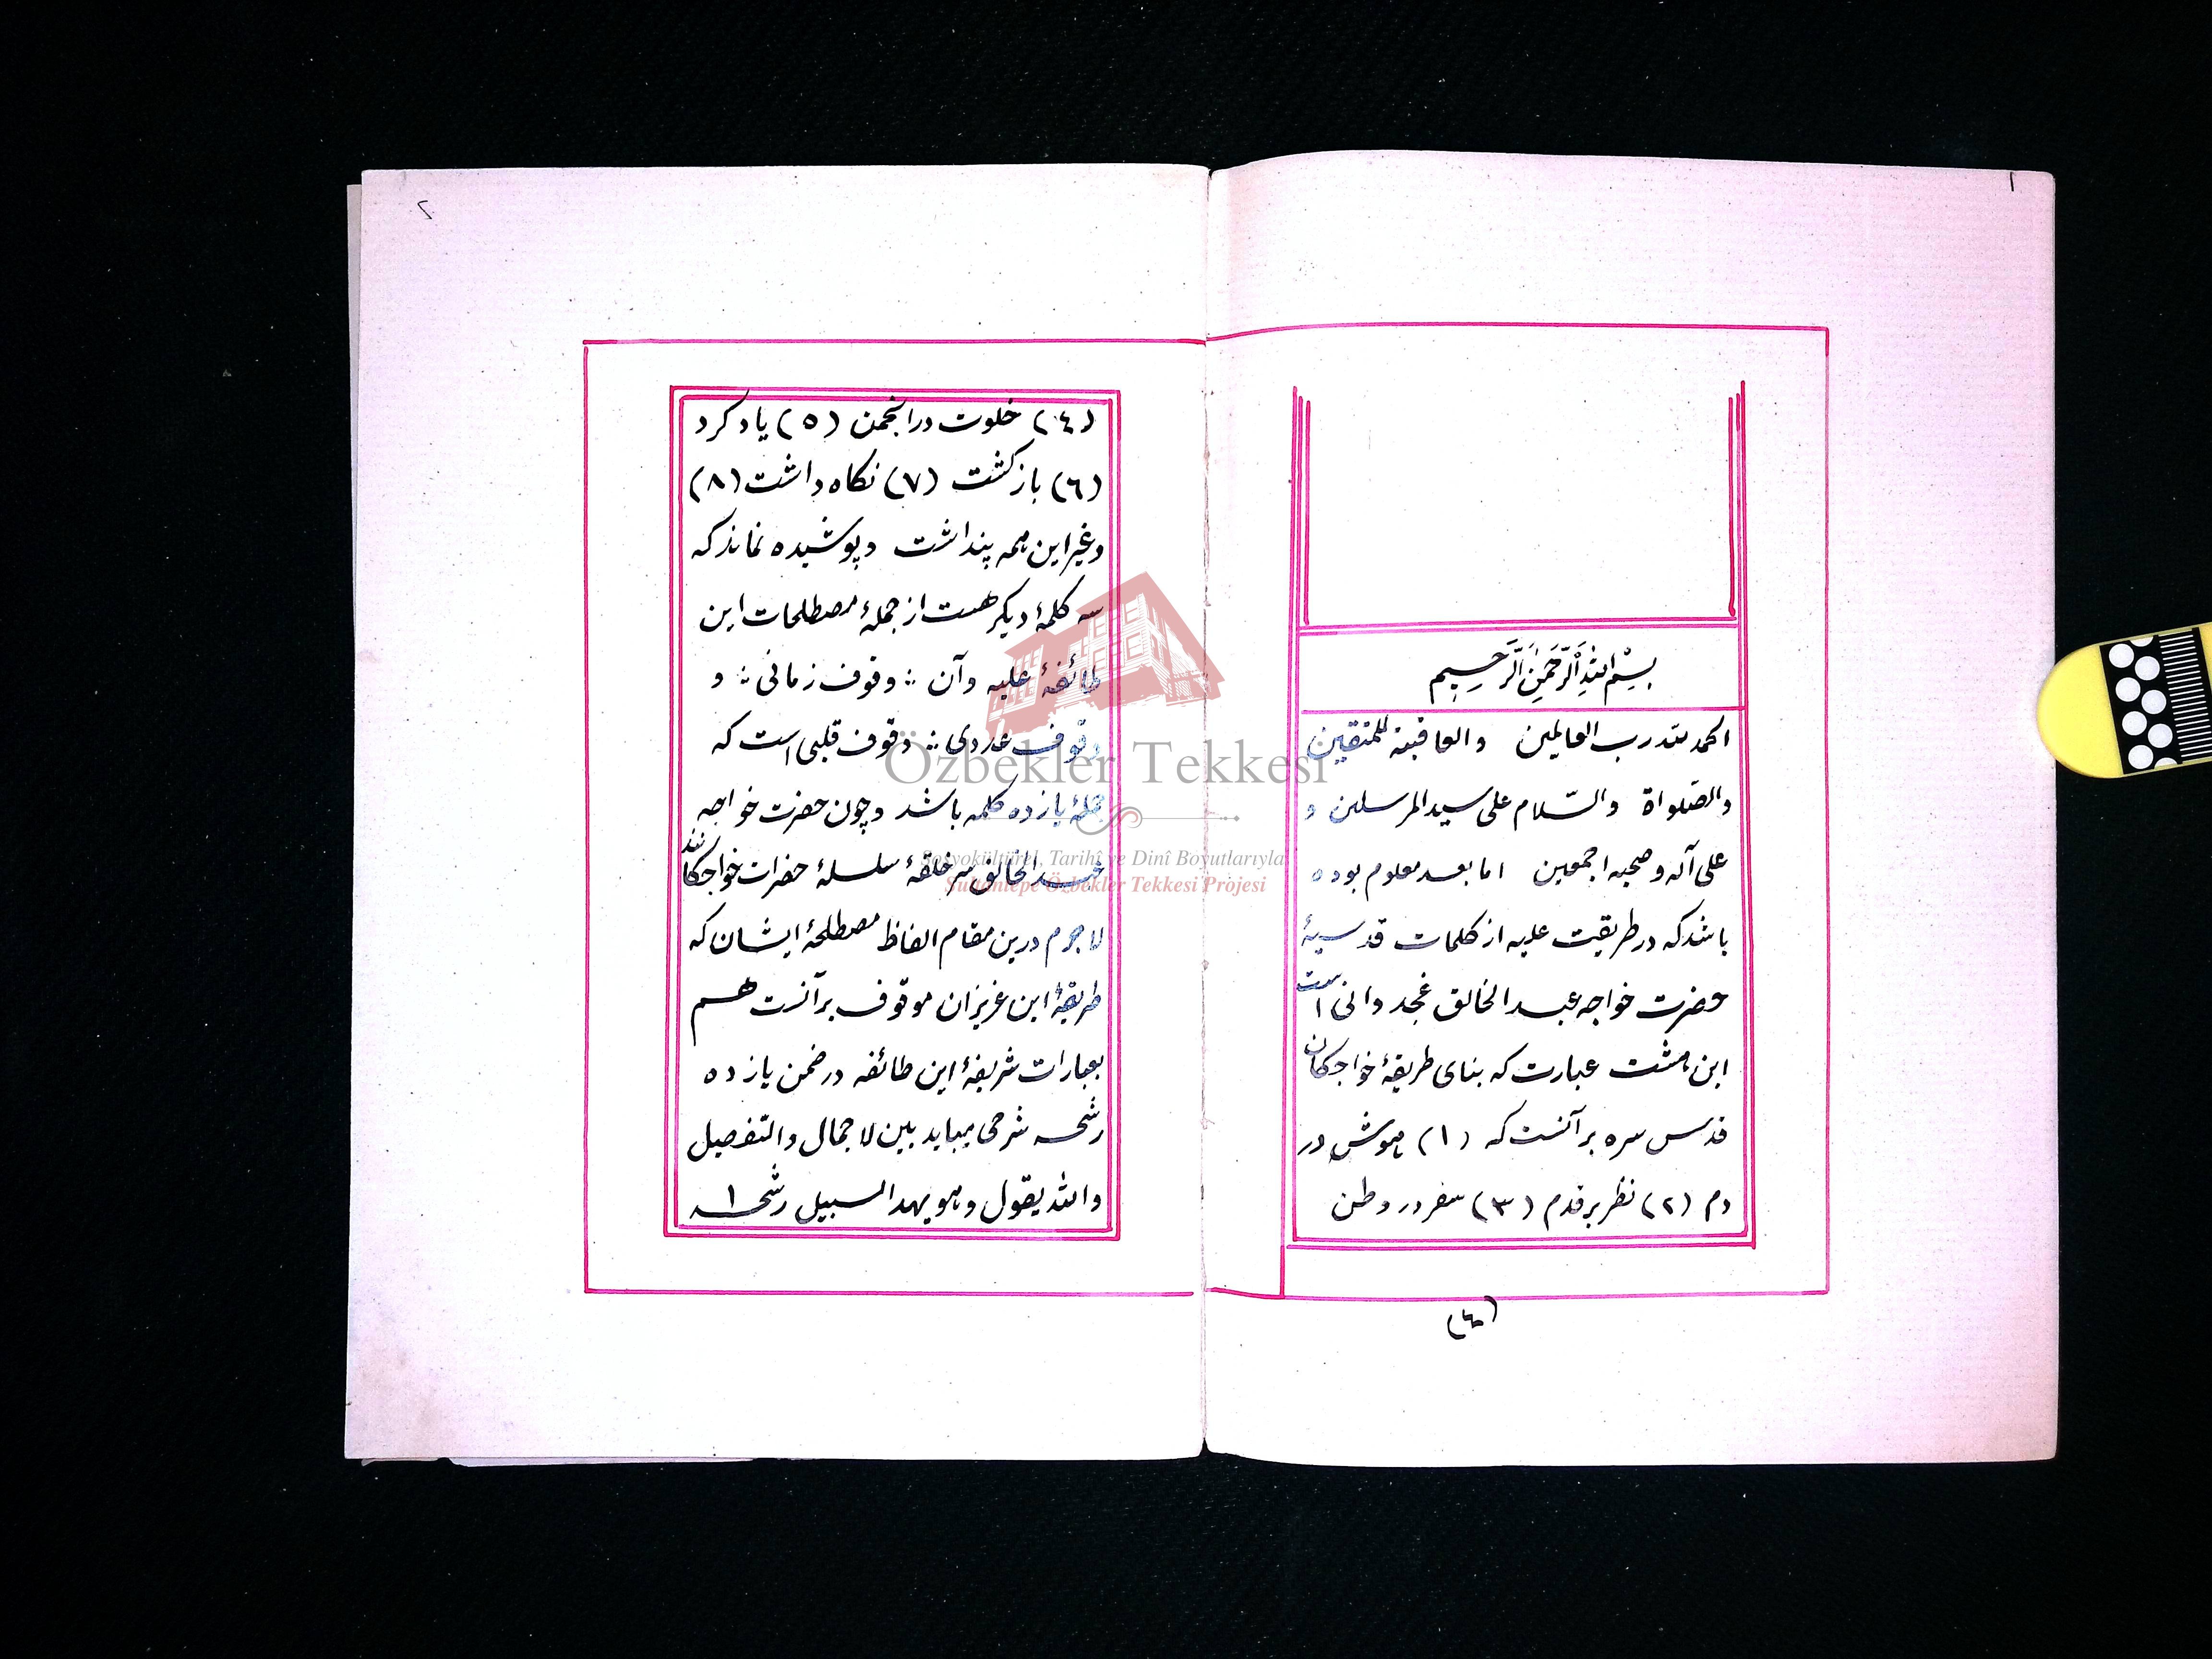 ١
بِسْمِ اللهِ الرَّحْمٰنِ الرَّحِيمِ
الحمد لله رب العالمين والعاقبة للمتقين
والصّلواة والسّلام على سيد المرسلين و
على آله وصحبه اجمعين اما بعد معلوم بوده
باشد که در طریقت علیه از کلمات قدسیهٔ
حضرت خواجه عبد الخالق غجدوانی است
این هشت عبارت که بنای طریقهٔ خواجکان
قدس سره بر آنست که (١) هوش در
دم (٢) نظر بر قدم (٣) سفر در وطن
(٤)
٢
(٤) خلوت در انجمن (٥) یاد کرد
(٦) باز کشت (٧) نکاه داشت (٨)
و غیر این همه پنداشت و پوشیده نماند که
سه کلمهٔ دیکر هست از جملهٔ مصطلحات این
طائفهٔ علیه و آن :: وقوف زمانی :: و
وقوف عددی :: وقوف قلبی است که
جملهٔ یازده کلمه باشد و چون حضرت خواجه
عبد الخالق سر خلقهٔ سلسلهٔ حضرات خواجکانند
لاجرم درین مقام الفاظ مصطلحهٔ ایشان که
طریقهٔ این عزیزان موقوف بر آنست هم
بعبارات شریفهٔ این طائفه در ضمن یازده
رشحه شرحی میباید بین لاجمال والتّفصیل
والله یقول وهو یهد السبیل رشحه ١
Özbekler Tekkesi
Sosyokültürel, Tarihî ve Dinî Boyutlarıyla
Sultantepe Özbekler Tekkesi Projesi